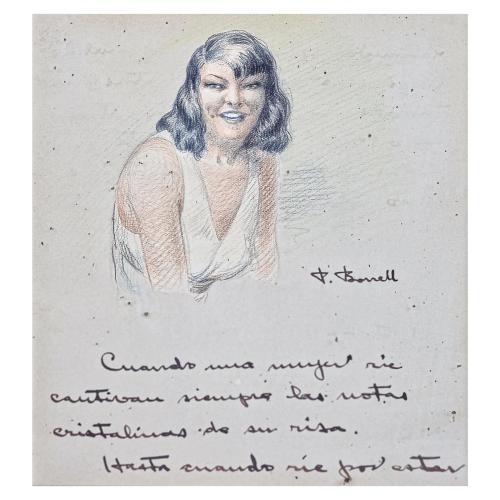 P. Borrell
Cuando una mujer ríe
cautivan siempre las notas
cristalinas de su risa.
Hasta cuando ríe por estar